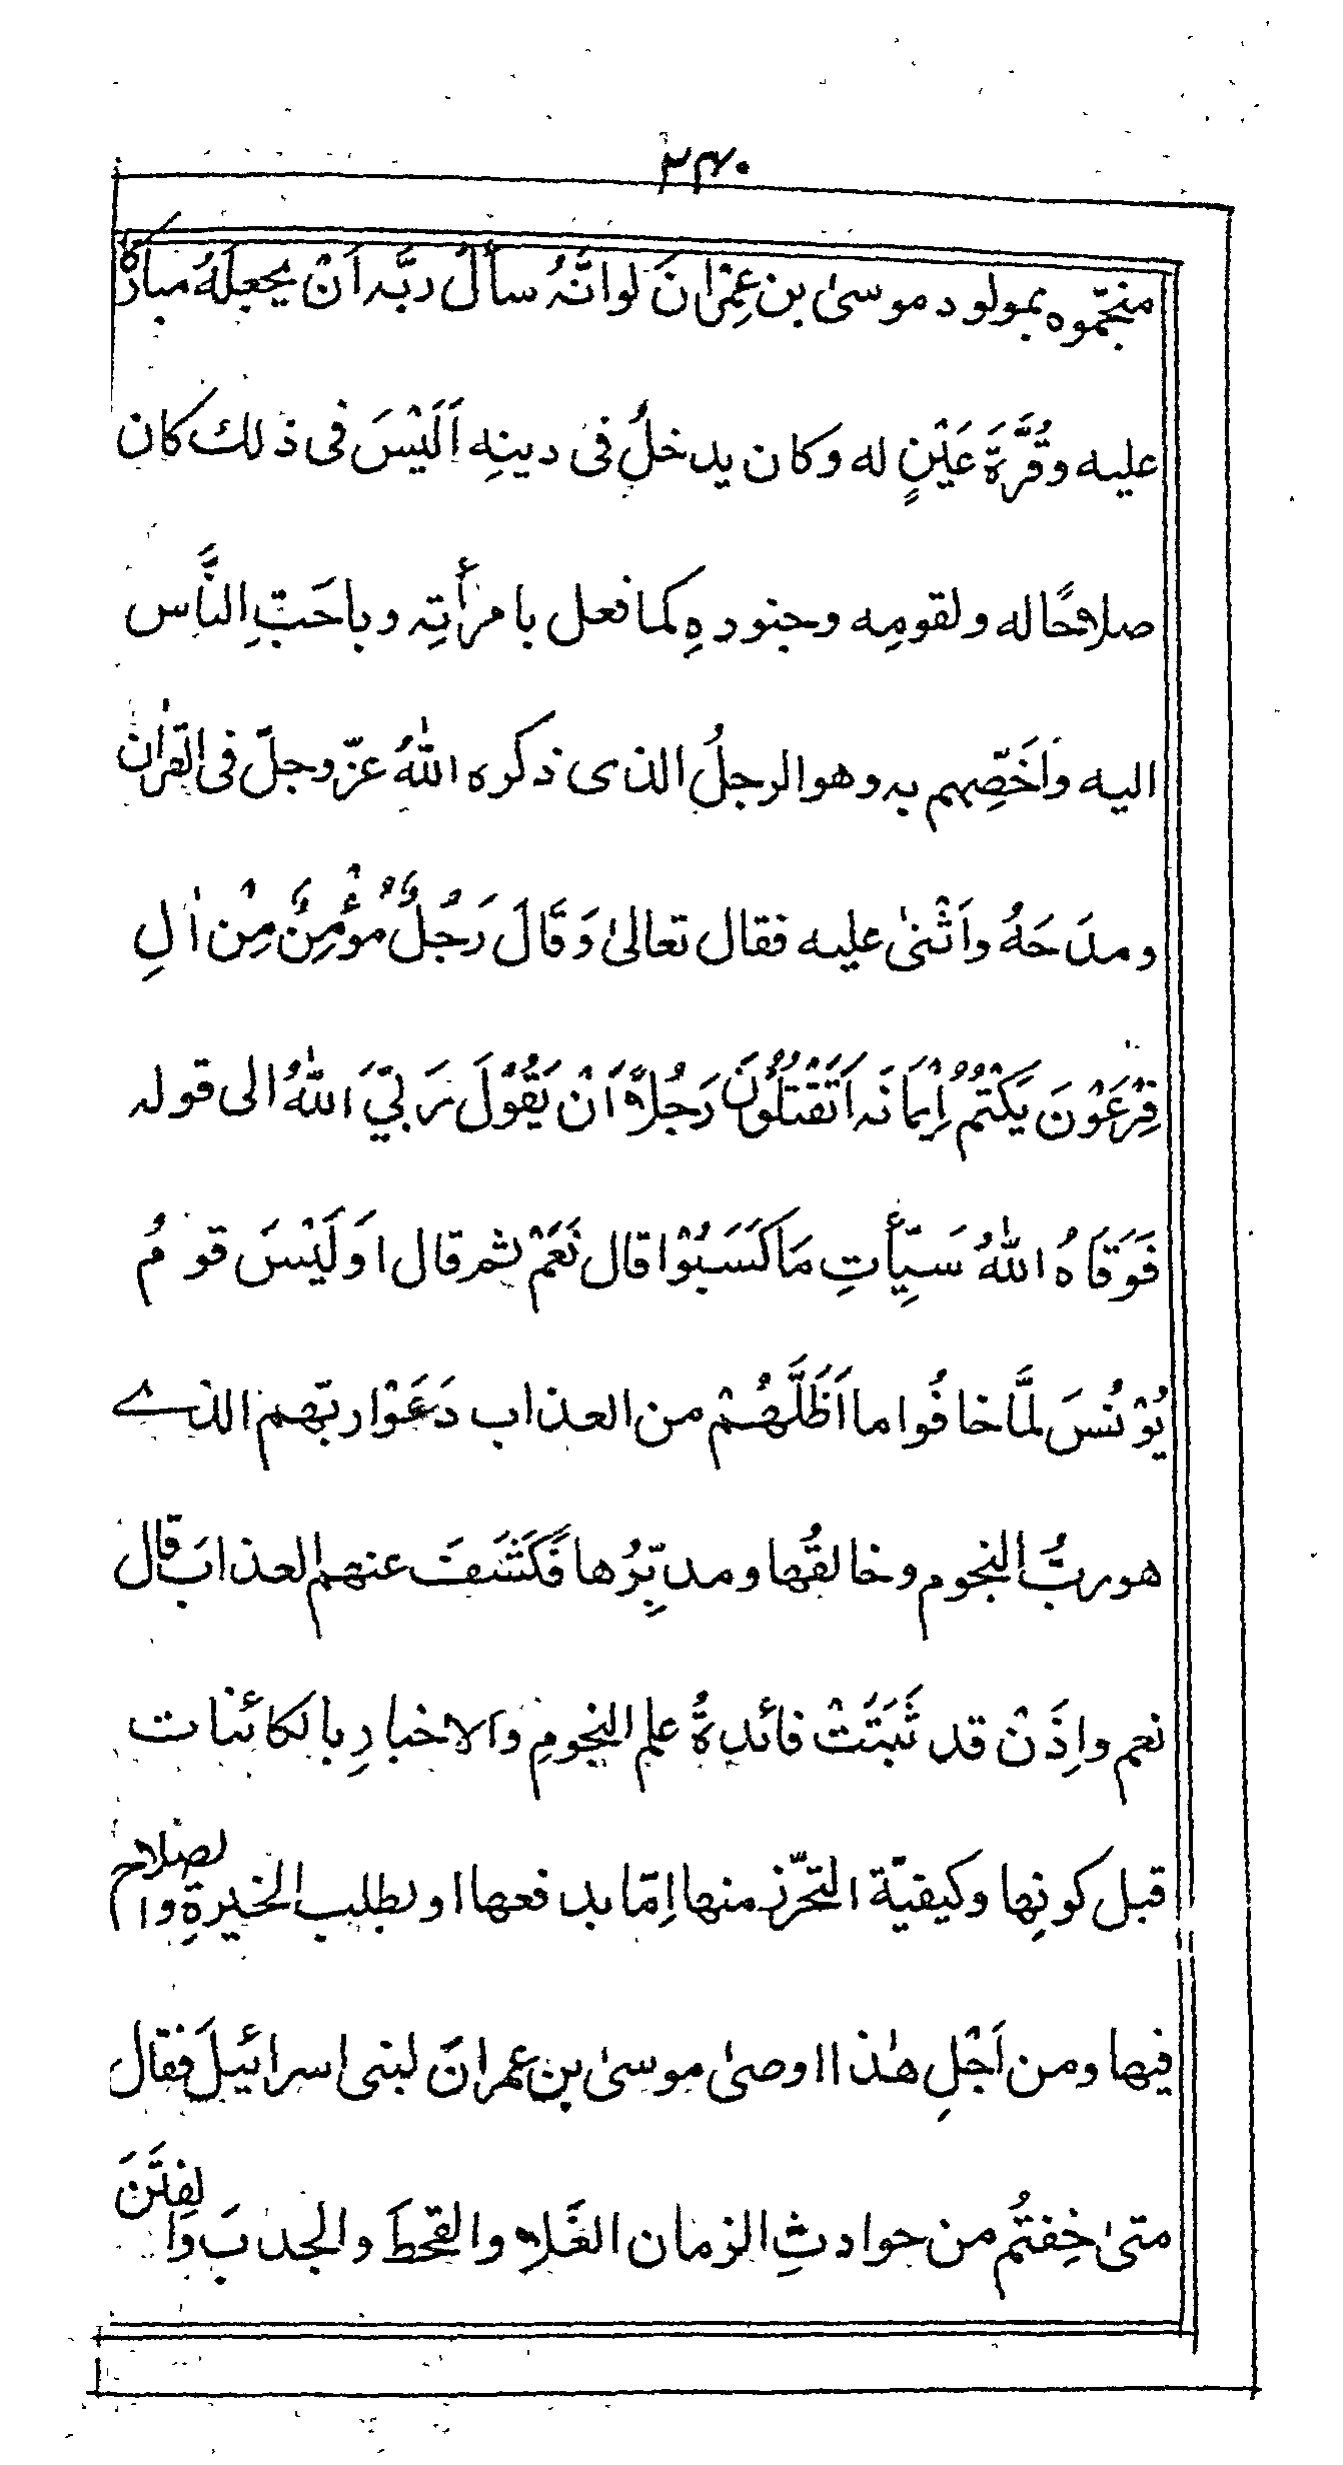 ۲۴۰
منجّموه بمولود موسىٰ بن عِمْرَانَ لو انَّهُ سأل ربَّه اَنْ يجعلَهُ مباركًا
عليه وقُرَّةَ عَيْنٍ له وكان يدخلُ فى دينِه اَلَيْسَ فى ذلك كان
صلاحًا له ولقومِه وجنودِهِ كما فعل بامرأتِه وباحَبِّ النَّاس
اليه واَخَصِّهم به وهو الرجلُ الذى ذكره اللّٰهُ عزّ وجلّ فى القراٰن
ومدَحَهُ واَثْنىٰ عليه فقال تعالىٰ وَقَالَ رَجُلٌ مُؤْمِنٌ مِنْ اٰلِ
فِرْعَوْنَ يَكْتُمُ اِيْمَانَه اَتَقْتُلُوْنَ رَجُلًا اَنْ يَقُوْلَ رَبِّيَ اللّٰهُ الى قوله
فَوَقَاهُ اللّٰهُ سَيِّأتِ مَا كَسَبُوْا قال نَعَمْ ثم قال اَوَلَيْسَ قومُ
يُوْنُسَ لمَّا خافُوا ما اَظَلَّهُمْ من العذاب دَعَوْا ربّهم الذے
هو ربُّ النجوم وخالقُها ومدبِّرُها فَكَشَفَ عنهم العذابَ قال
نعم واِذَنْ قد ثَبَتَتْ فائدةُ علم النجومِ والاخبارِ بالكائنات
قبل كونِها وكيفيّة التحرّز منها اِمّا بدفعها او بطلب الخيرةِ والصلاح
فيها ومن اَجْلِ هٰذا اوصىٰ موسىٰ بن عمرانَ لبنى اسرائيلَ فقال
متىٰ خِفتُم من حوادثِ الزمان الغَلا والقحطَ والجدبَ والفِتَنَ